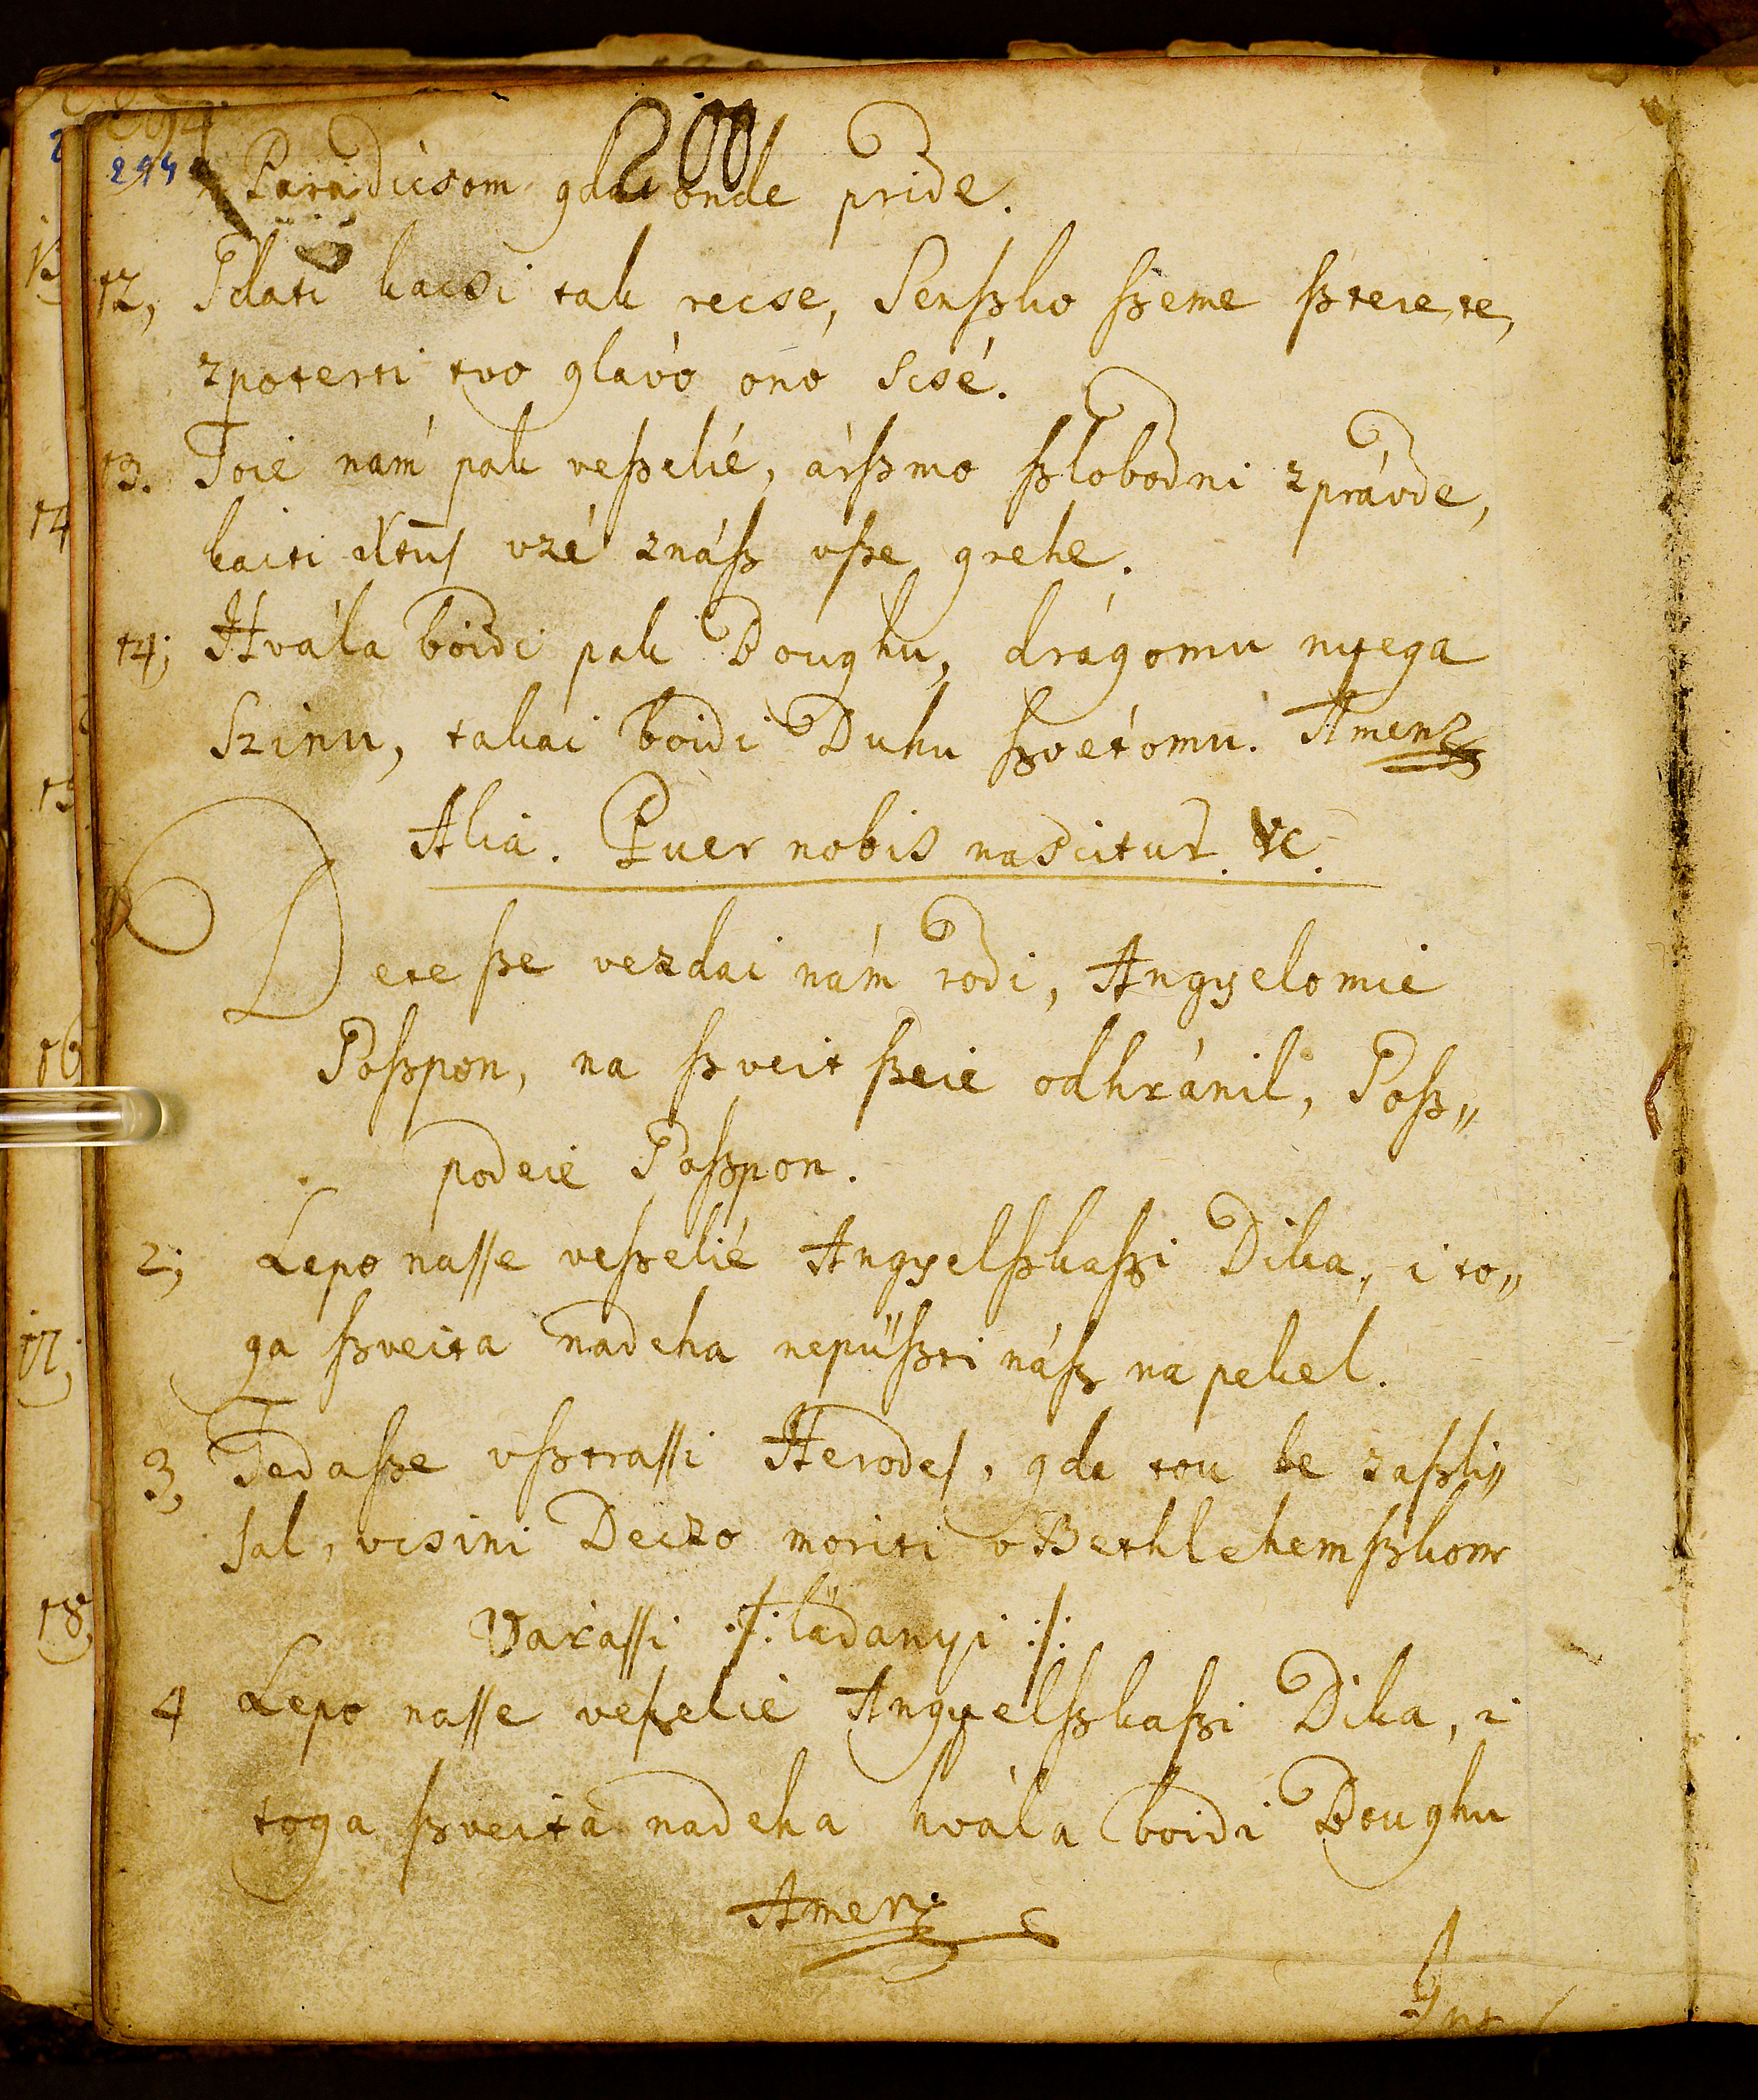 200
244
Paradicsom gda onde pride.
12, Sdati kacsi tak recse, Senßko ßeme ßtere te,
zpoterti tvo glávo onó scsé.
13. Toie nám pak veßelié, árßmo ßlobodni zprávde,
kaiti Xtus vzé znáß vße grehe.
14; Hvála boidi pak Boughu, drágomu nyega
Szinu, takai boidi Duhu ßvétomu. Amen
Alia. Puer nobis nascitur. &c.
Dete ße vezdai nám rodi, Angyelomié
Goßpon, na ßveit ßeié odhránil, Goß„
podeié Goßpon.
2; Lepo nasse veßelié Angyelßkaßi Dika, i to„
ga ßveita nadeha nepüßti náß na pekel.
3, Tedaße vßtrassi Herodes, gda tou be zaßli„
sal, vcsini Deczo moriti v Bethlehemßkom
Varassi ./: ládanyi :/.
4 Lepo nasse veßelié Angyelßkaßi Dika, i
toga ßveita nadeha hvála boidi Boughu
Amen
14
16
17;
18,